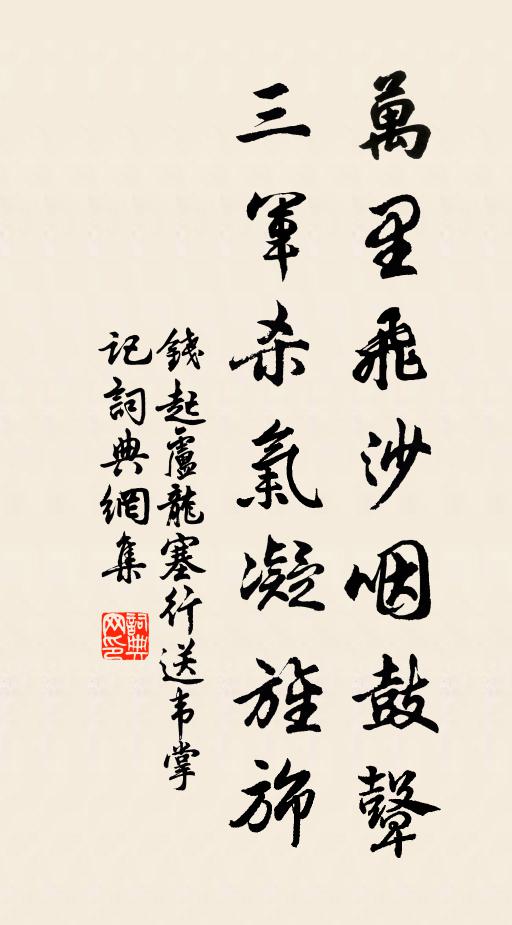 萬里飛沙咽鼓鼙
三軍杀氣凝旌旆
錢起盧龍塞行送韦掌
記詞典網集
詞典
网印